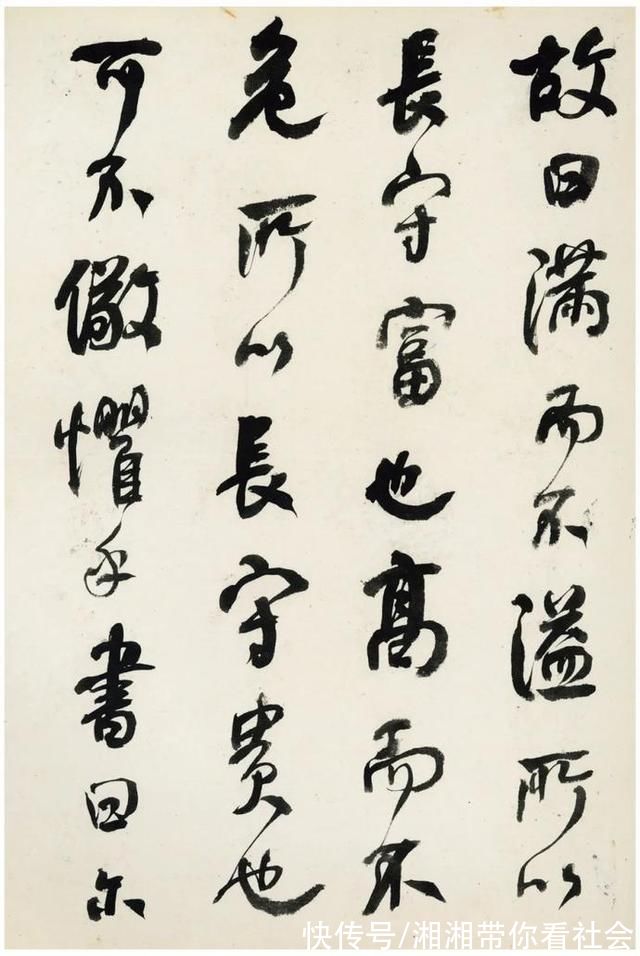 故曰滿而不溢所以
長守富也高而不
危所以長守貴也
可不儆懼乎書曰尔
快传号/湘湘带你看社会